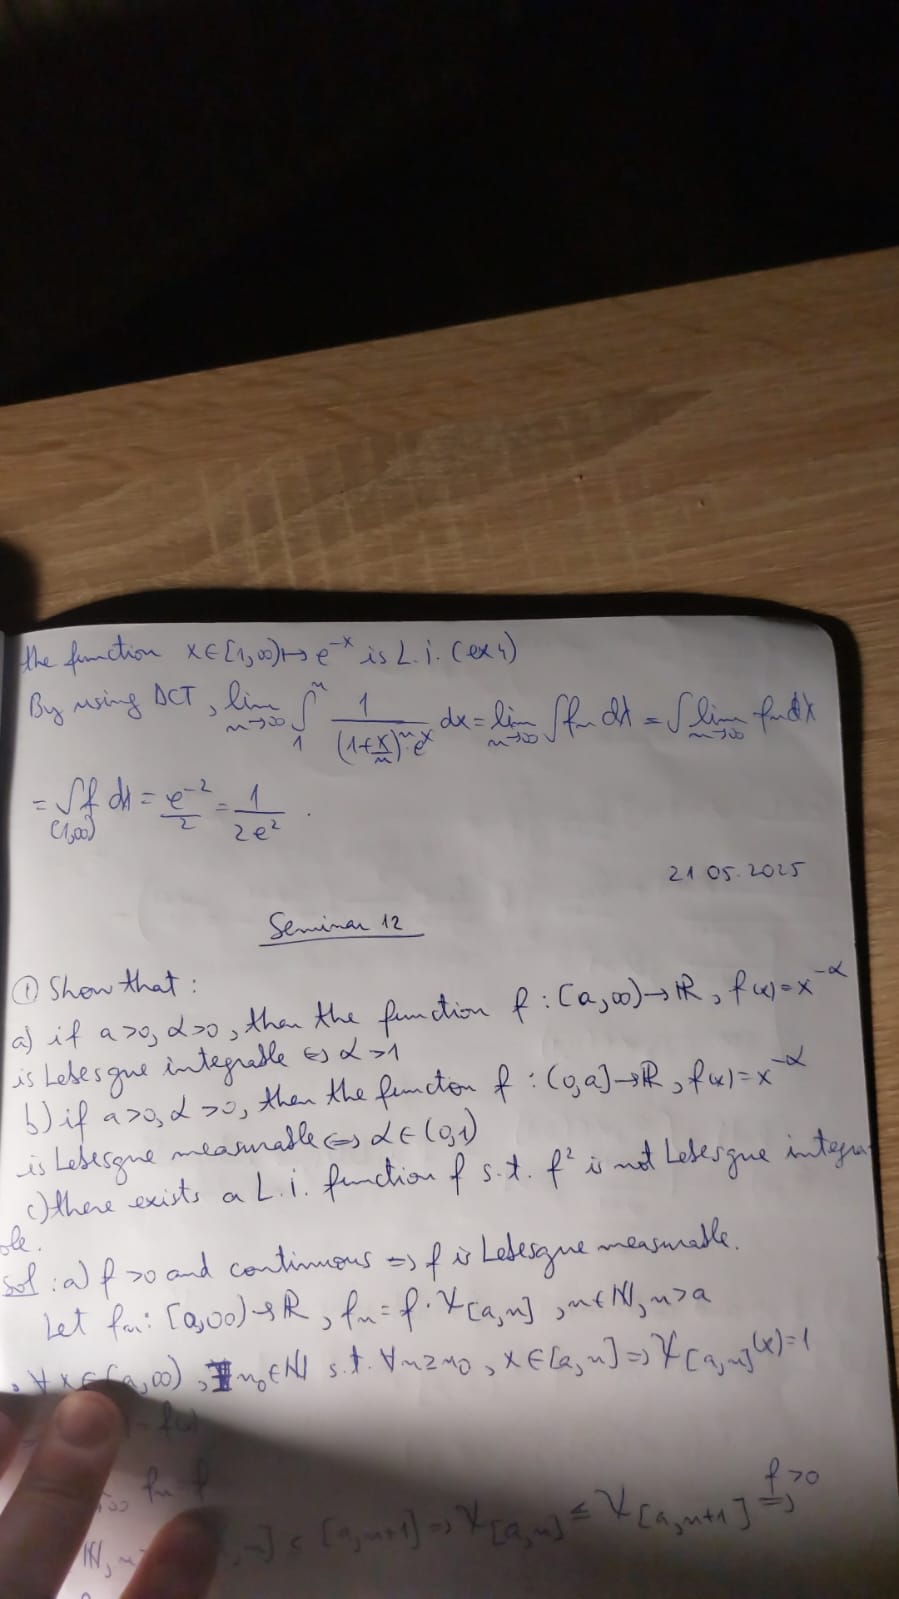 the function x∈[1,∞)↦e^{-x} is L.i. (ex 4)
By using DCT, lim_{n→∞} ∫_1^n 1/((1+x/n)^n·e^x) dx = lim_{n→∞} ∫fn dλ = ∫lim_{n→∞} fn dλ
= ∫_{[1,∞)} f dλ = e^{-2}/2 = 1/(2e^2).
21 05.2025
Seminar 12
① Show that:
a) if a>0, α>0, then the function f:[a,∞)→ℝ, f(x)=x^{-α}
is Lebesgue integrable ⇔ α>1
b) if a>0, α>0, then the function f:(0,a]→ℝ, f(x)=x^{-α}
is Lebesgue measurable ⇔ α∈(0,1)
c) there exists a L.i. function f s.t. f² is not Lebesgue integra-
ble.
Sol: a) f>0 and continuous ⇒ f is Lebesgue measurable.
Let fn:[a,∞)→ℝ, fn=f·χ_{[a,n]}, n∈ℕ, n>a
, ∀x∈[a,∞), ∃n₀∈ℕ s.t. ∀n≥n₀, x∈[a,n] ⇒ χ_{[a,n]}(x)=1
= f(x)
fn = f
ℕ, n ,n] ⊆ [a,n+1] ⇒ χ_{[a,n]} ≤ χ_{[a,n+1]} ⇒^{f>0}